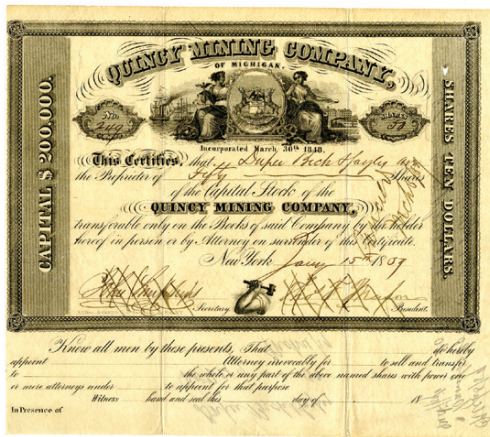 QUINCY MINING COMPANY,
OF MICHIGAN.
No.
249
SHARES
50
Incorporated March 30th 1848.
CAPITAL $200,000.
SHARES TEN DOLLARS.
This Certifies, that
the Proprietor of Fifty Shares
of the Capital Stock of the
QUINCY MINING COMPANY,
transferable only on the Books of said Company by the holder
thereof in person or by Attorney on surrender of this Certificate.
New York Jany 15th 1859
Secretary. President.
Know all men by these presents, That do hereby
appoint Attorney irrevocably for to sell and transfer
to the whole or any part of the above named shares with power one
or more attorneys under to appoint for that purpose
Witness hand and seal this day of 18
In Presence of